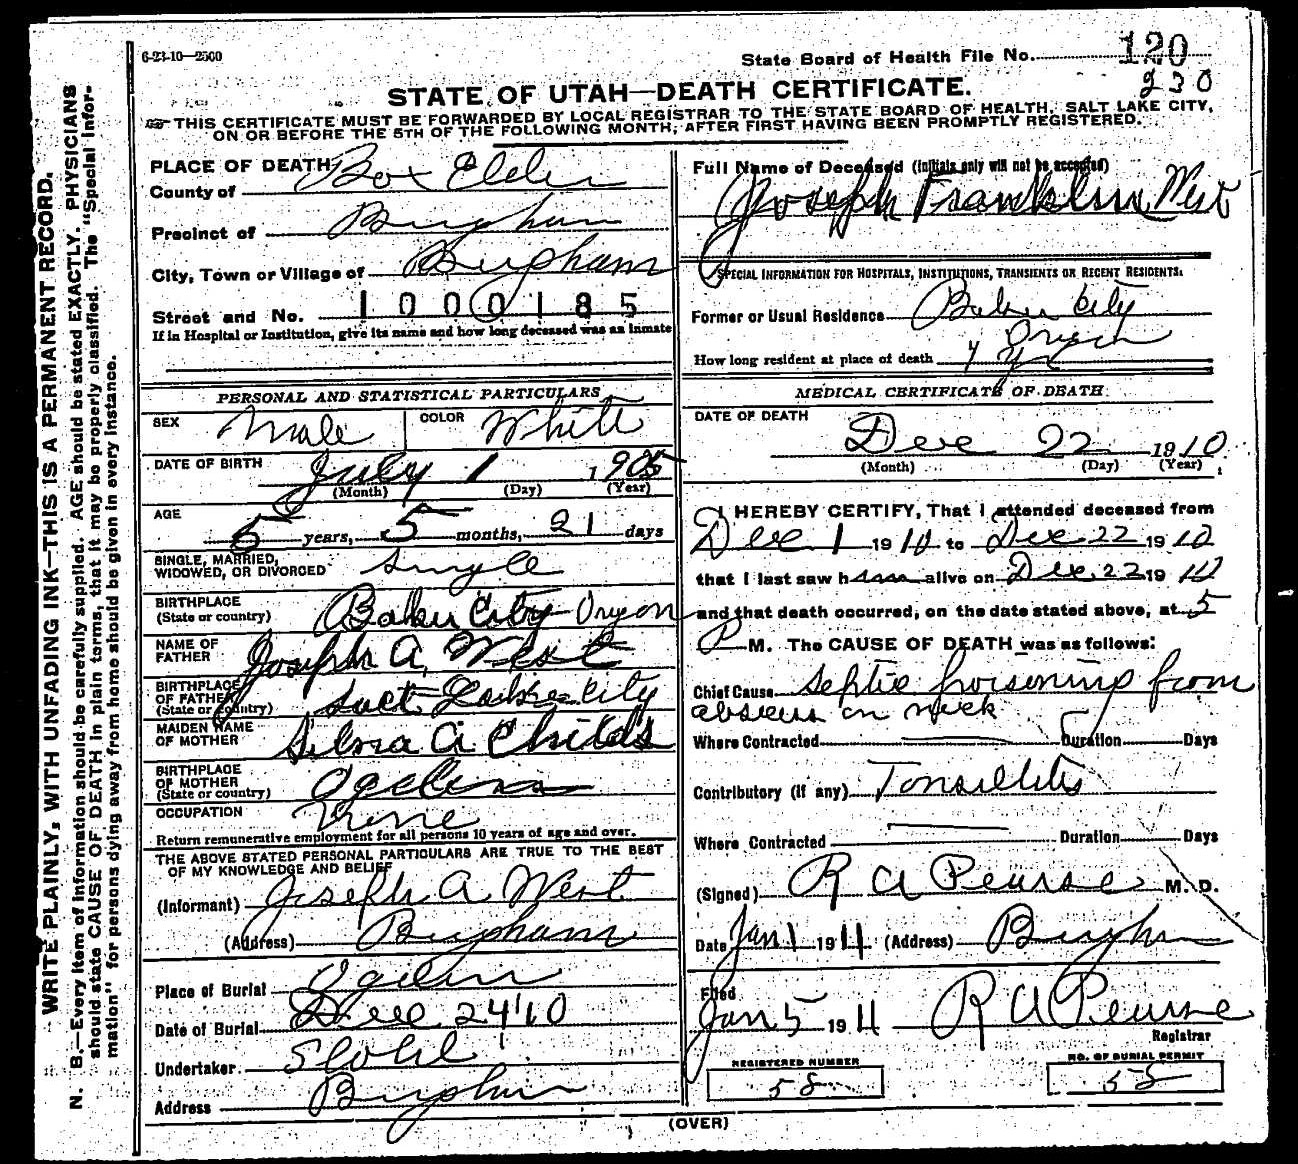 6-23-10—2500
State Board of Health File No. 120
230
STATE OF UTAH—DEATH CERTIFICATE.
THIS CERTIFICATE MUST BE FORWARDED BY LOCAL REGISTRAR TO THE STATE BOARD OF HEALTH, SALT LAKE CITY,
ON OR BEFORE THE 5TH OF THE FOLLOWING MONTH, AFTER FIRST HAVING BEEN PROMPTLY REGISTERED.
WRITE PLAINLY, WITH UNFADING INK—THIS IS A PERMANENT RECORD.
N. B.—Every item of information should be carefully supplied. AGE should be stated EXACTLY. PHYSICIANS
should state CAUSE OF DEATH in plain terms, that it may be properly classified. The "Special Infor-
mation" for persons dying away from home should be given in every instance.
PLACE OF DEATH
County of Box Elder
Precinct of Brigham
City, Town or Village of Brigham
Street and No. 1000185
If in Hospital or Institution, give its name and how long deceased was an Inmate
PERSONAL AND STATISTICAL PARTICULARS
SEX Male COLOR White
DATE OF BIRTH July 1 1905
(Month) (Day) (Year)
AGE
5 years, 5 months, 21 days
SINGLE, MARRIED,
WIDOWED, OR DIVORCED Single
BIRTHPLACE
(State or country) Baker City Oregon
NAME OF
FATHER Joseph A. West
BIRTHPLACE
OF FATHER
(State or country) Salt Lake City
MAIDEN NAME
OF MOTHER A Childs
BIRTHPLACE
OF MOTHER
(State or country) Ogden
OCCUPATION None
Return remunerative employment for all persons 10 years of age and over.
THE ABOVE STATED PERSONAL PARTICULARS ARE TRUE TO THE BEST
OF MY KNOWLEDGE AND BELIEF
(Informant) Joseph A West
(Address) Brigham
Place of Burial Ogden
Date of Burial Dec 24 '10
Undertaker Stohl
Address Brigham
Full Name of Deceased (initials only will not be accepted)
Joseph Franklin West
SPECIAL INFORMATION FOR HOSPITALS, INSTITUTIONS, TRANSIENTS OR RECENT RESIDENTS.
Former or Usual Residence Baker City
Oregon
How long resident at place of death 4 yr
MEDICAL CERTIFICATE OF DEATH
DATE OF DEATH
Dec 22 1910
(Month) (Day) (Year)
I HEREBY CERTIFY, That I attended deceased from
Dec 1 1910 to Dec 22 1910
that I last saw him alive on Dec. 22 1910
and that death occurred, on the date stated above, at 5
P M. The CAUSE OF DEATH was as follows:
Chief Cause Septic poisoning from
abscess on neck
Where Contracted Duration Days
Contributory (if any) Tonsillitis
Where Contracted Duration Days
(Signed) R A Pearse M. D.
Date Jan 1 1911 (Address) Brigham
Filed
Jan 5 1911 R A Pearse
Registrar
REGISTERED NUMBER
58
NO. OF BURIAL PERMIT
58
(OVER)